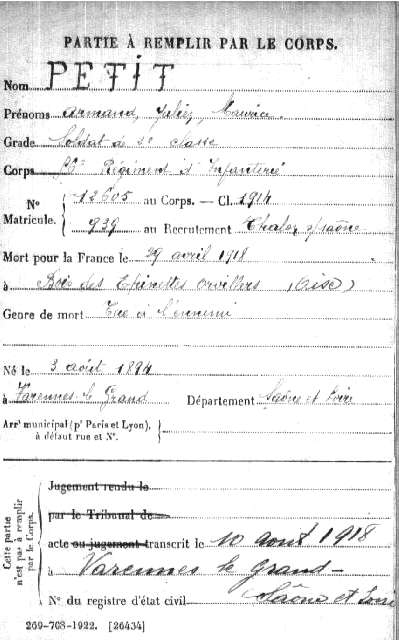 PARTIE À REMPLIR PAR LE CORPS.
Nom PETIT
Prénoms Armand, Jules, Maurice.
Grade Soldat de 2e classe
Corps Régiment d'Infanterie
N° Matricule. { 12605 au Corps. — Cl. 1914
939 au Recrutement Chalon s/Saône
Mort pour la France le 29 avril 1918
à Bois des Epinettes Orvillers (Oise)
Genre de mort Tué à l'ennemi
Né le 3 août 1894
à Varennes le Grand Département Saône et Loire
Arrt municipal (pr Paris et Lyon), à défaut rue et N°. }
Cette partie n'est pas à remplir par le Corps.
Jugement rendu le
par le Tribunal de
acte ou jugement transcrit le 10 août 1918
à Varennes le Grand -
N° du registre d'état civil Saône et Loire
269-708-1922. [26434]